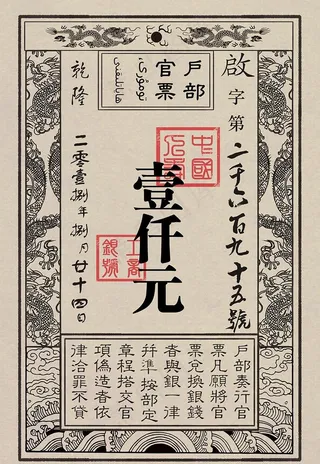 戶部
官票
啟字第二千六百九十五號
乾隆
二零壹捌年捌月廿十四日
壹仟元
中國
工商
銀號
戶部奏行官
票凡願將官
票兌換銀錢
者與銀一律
并準按部定
章程搭交官
項偽造者依
律治罪不貸